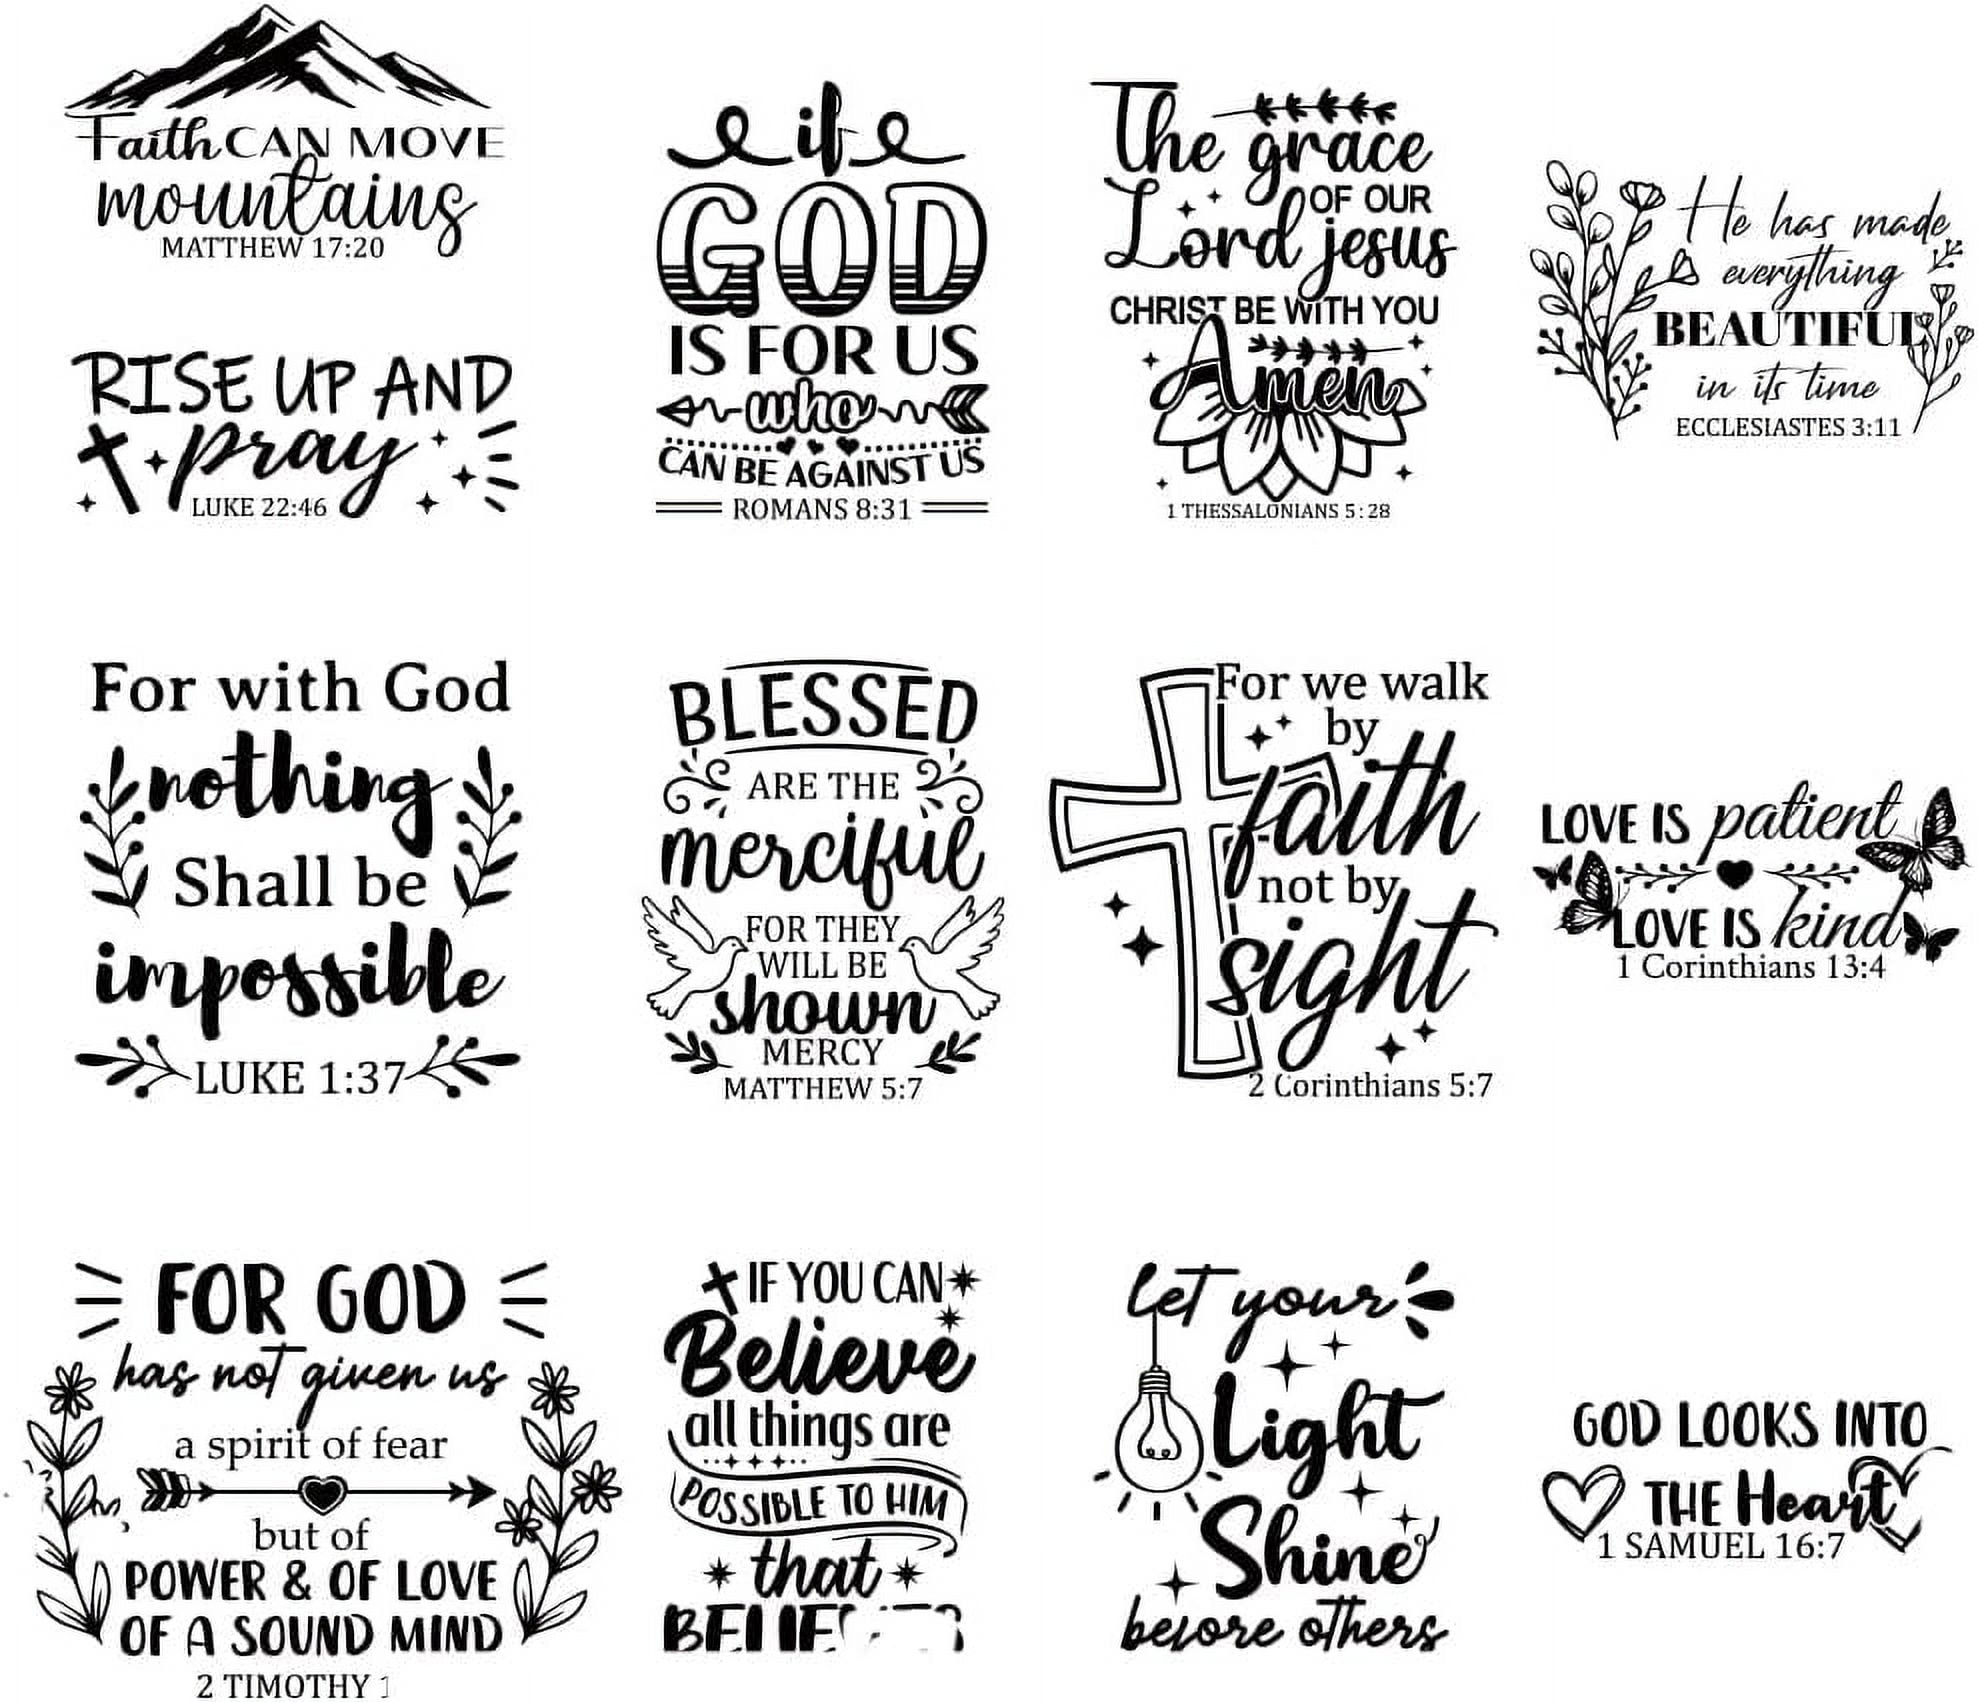 Faith CAN MOVE
mountains
MATTHEW 17:20
RISE UP AND
pray
LUKE 22:46
if
GOD
IS FOR US
who
CAN BE AGAINST US
ROMANS 8:31
The grace
OF OUR
Lord jesus
CHRIST BE WITH YOU
Amen
1 THESSALONIANS 5:28
He has made
everything
BEAUTIFUL
in its time
ECCLESIASTES 3:11
For with God
nothing
Shall be
impossible
LUKE 1:37
BLESSED
ARE THE
merciful
FOR THEY
WILL BE
shown
MERCY
MATTHEW 5:7
For we walk
by
faith
not by
sight
2 Corinthians 5:7
LOVE IS patient
LOVE IS kind
1 Corinthians 13:4
FOR GOD
has not given us
a spirit of fear
but of
POWER & OF LOVE
OF A SOUND MIND
2 TIMOTHY 1
IF YOU CAN
Believe
all things are
POSSIBLE TO HIM
that
let your
Light
Shine
before others
GOD LOOKS INTO
THE Heart
1 SAMUEL 16:7